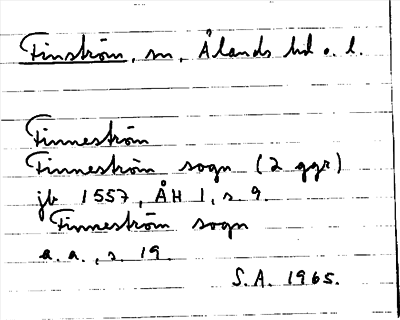 Finström, sn, Ålands hd o. l.
Finneström
Finneström sogn (2 ggr)
jb 1557, ÅH 1, s 9.
Finneström sogn
a. a., s 19.
S.A. 1965.